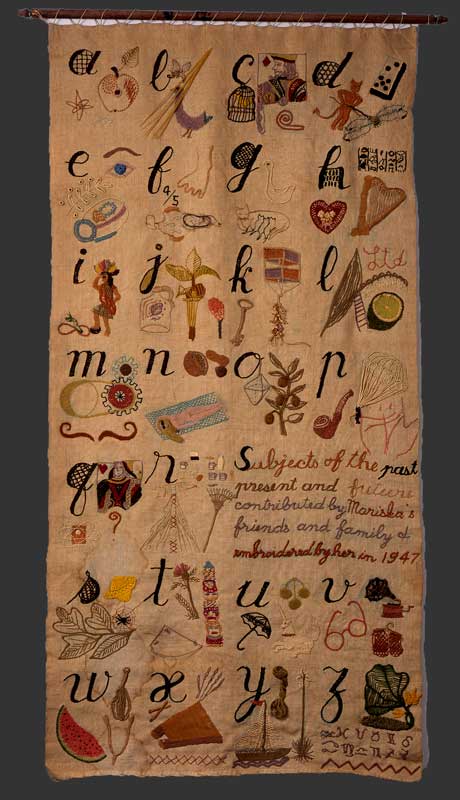 a b c d
e f g h
4/5
i j k l
Ltd
m n o p
q r
Subjects of the past
present and future
contributed by Mariska's
friends and family &
embroidered by her in 1947
?
t u v
w x y z